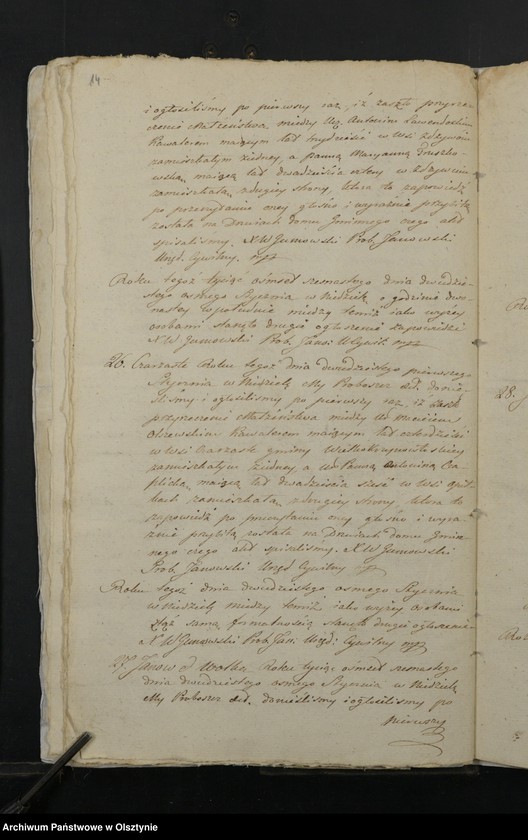 14
i ogłosiliśmy po pierwszy raz, iż zaszło przyrze-
czenie Małżeństwa między Ur. Antonim
Kawalerem maiącym lat trzydzieści w wsi
zamieszkałym z iedney, a Panną Maryanną
maiącą lat dwadzieścia cztery w
zamieszkałą z drugiey strony, która to zapowiedź
po przeczytaniu oney głośno i wyraźnie przybitą
została na Drzwiach domu Gminnego czego akt
spisaliśmy. X W Gumowski Prob. Janowski
Urzęd. Cywilny mpr
Roku tegoż tysiąc ośmset szesnastego dnia dwudzie-
stego osmego Stycznia w Niedzielę o godzinie dwu-
nastey w południe między temiż iako wyżey
osobami stanęło drugie ogłoszenie zapowiedzi
X W Gumowski Prob. Jan. mpr
26. Czarzaste Roku tegoż dnia dwudziestego pierwszego
Stycznia w Niedzielę My Proboszcz dd. donie-
śliśmy i ogłosiliśmy po pierwszy raz, iż zaszło
przyrzeczenie Małżeństwa między
Kawalerem maiącym lat czterdzieści
w wsi Czarzaste gminy
zamieszkałym z iedney, a Ur. Panną Antoniną
maiącą lat dwadzieścia sześć w wsi
zamieszkałą z drugiey strony, która to
zapowiedź po przeczytaniu oney głośno i wyra-
źnie przybitą została na Drzwiach domu Gmin-
nego czego akt spisaliśmy. X W Gumowski
Prob. Janowski Urzęd Cywilny mpr
Roku tegoż dnia dwudziestego osmego Stycznia
w Niedzielę między temiż iako wyżey osobami
tąż samą formalnością stanęło drugie ogłoszenie
X W Gumowski Prob. Jan. Urzęd. Cywilny mpr
27. Janow Roku tysiąc ośmset szesnastego
dnia dwudziestego osmego Stycznia w Niedzielę
My Proboszcz dd. donieśliśmy i ogłosiliśmy po
pierwszy
28.
Archiwum Państwowe w Olsztynie